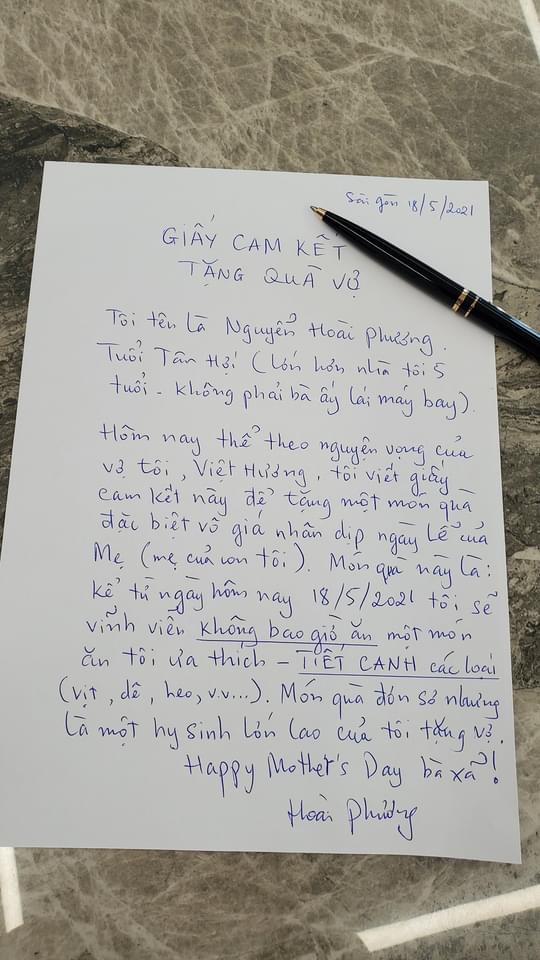 Sài gòn 18/5/2021
GIẤY CAM KẾT
TẶNG QUÀ VỢ
Tôi tên là Nguyễn Hoài Phương.
Tuổi Tân Hợi (lớn hơn nhìa tôi 5
tuổi - không phải bà ấy lái máy bay).
Hôm nay thể theo nguyện vọng của
vợ tôi, Việt Hương, tôi viết giấy
cam kết này để tặng một món quà
đặc biệt vô giá nhân dịp ngày Lễ của
Mẹ (mẹ của con tôi). Món quà này là:
kể từ ngày hôm nay 18/5/2021 tôi sẽ
vĩnh viễn không bao giờ ăn một món
ăn tôi ưa thích - TIẾT CANH các loại
(vịt, dê, heo, v.v...). Món quà đơn sơ nhưng
là một hy sinh lớn lao của tôi tặng vợ.
Happy Mother's Day bà xã!
Hoài Phương